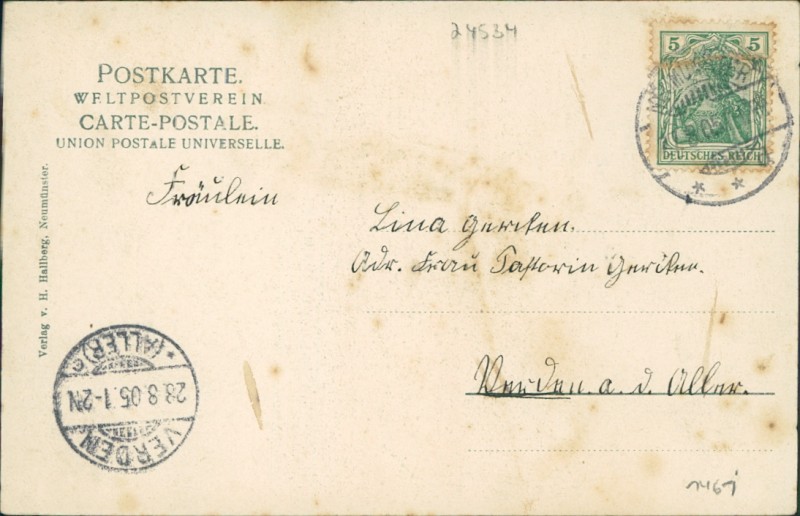 24534
POSTKARTE.
WELTPOSTVEREIN
CARTE-POSTALE.
UNION POSTALE UNIVERSELLE.
5 5
DEUTSCHES REICH
NEUMÜNSTER
Fräulein
Lina Gerken.
Adr. Frau Pastorin Gerken.
Verden a. d. Aller.
Verlag v. H. Hallberg, Neumünster.
VERDEN
28.8.05.1-2N
*(ALLER)c